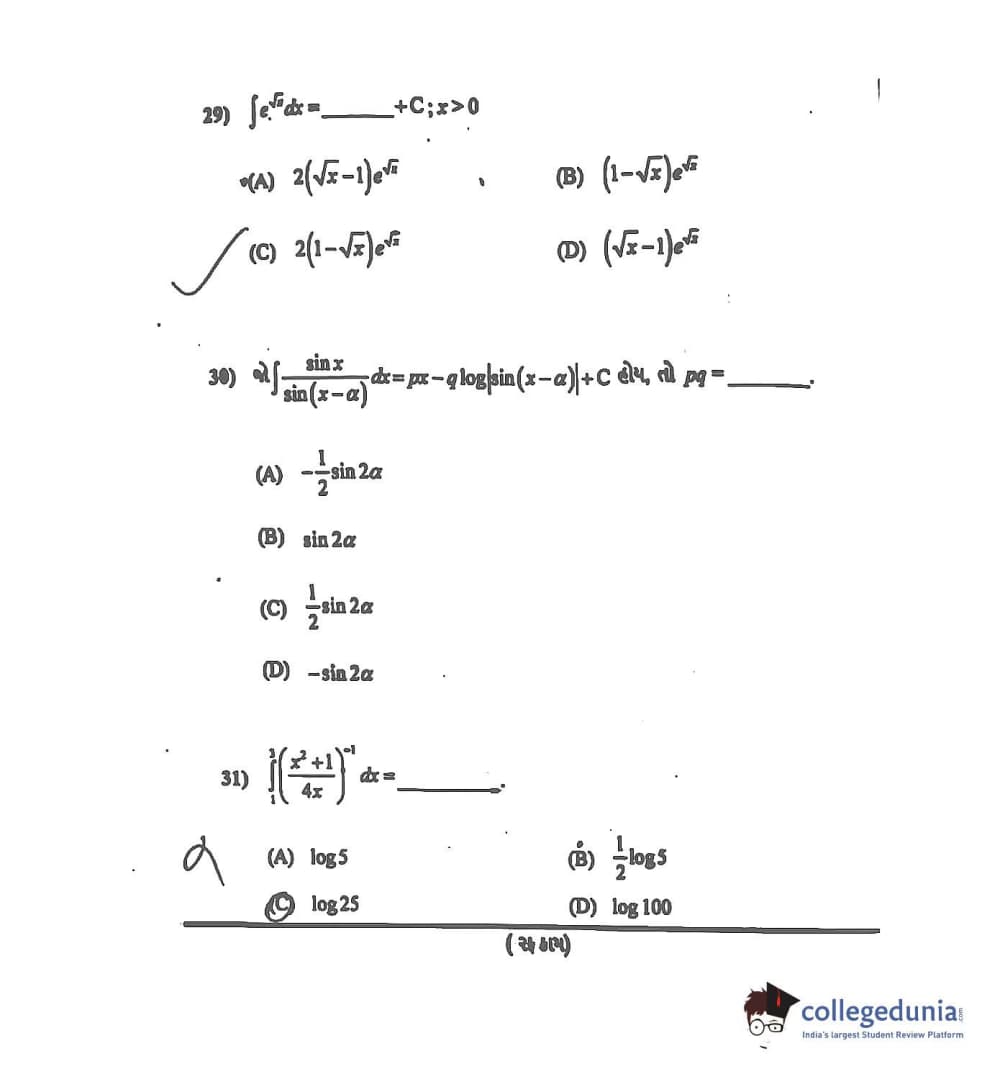 29) ∫e^√x dx = ______ +C; x>0
(A) 2(√x−1)e^√x (B) (1−√x)e^√x
(C) 2(1−√x)e^√x (D) (√x−1)e^√x
30) જો ∫ sin x / sin(x−α) dx = px − q log|sin(x−α)| + C હોય, તો pq = ______.
(A) −1/2 sin 2α
(B) sin 2α
(C) 1/2 sin 2α
(D) −sin 2α
31) ∫₁³ ((x²+1)/4x)⁻¹ dx = ______.
(A) log 5 (B) 1/2 log 5
(C) log 25 (D) log 100
collegedunia.com
India's largest Student Review Platform